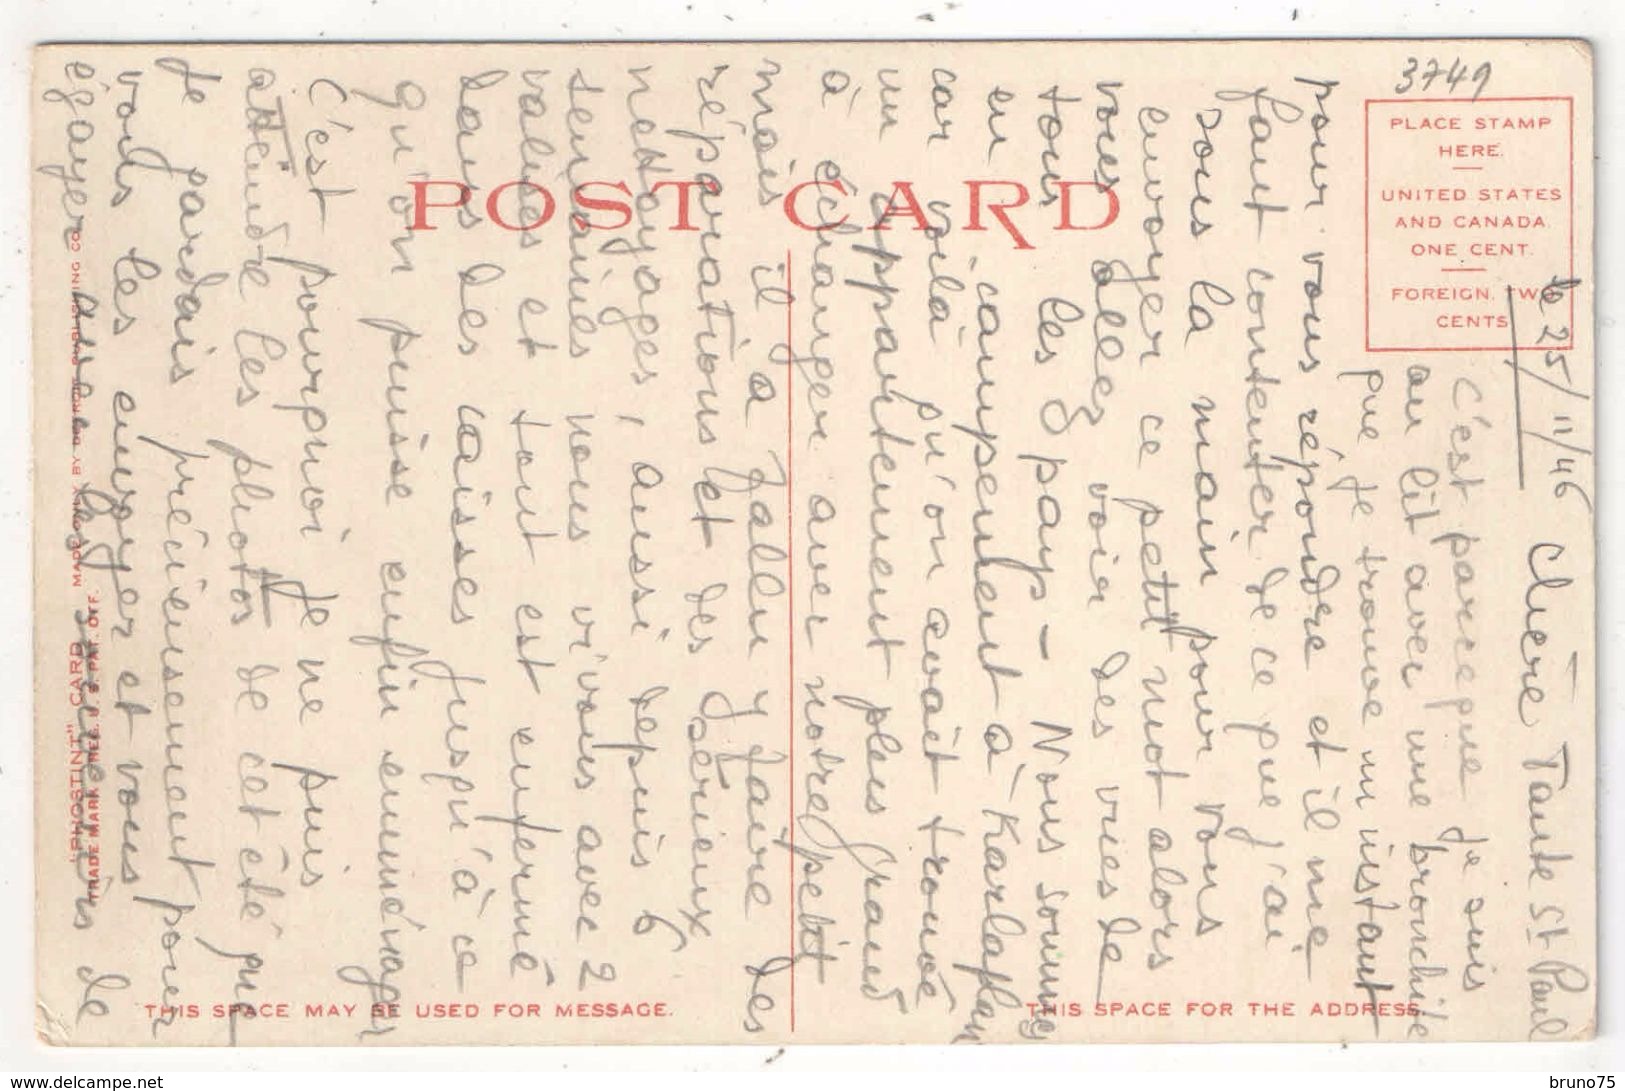 3749
POST CARD
PLACE STAMP
HERE.
UNITED STATES
AND CANADA
ONE CENT.
FOREIGN. TWO
CENTS
THIS SPACE MAY BE USED FOR MESSAGE.
THIS SPACE FOR THE ADDRESS.
"PHOSTINT" CARD MADE ONLY BY DETROIT PUBLISHING CO.
TRADE MARK REG. U. S. PAT. OFF.
le 25/11/46
Chère Tante St Paul
C'est parceque je suis
au lit avec une bronchite
que je trouve un instant
pour vous répondre et il me
faut contenter de ce que j'ai
sous la main pour vous
envoyer ce petit mot alors
vous allez voir des vues de
tous les pays - Nous sommes
en campement à Karlaplan
car voilà qu'on avait trouvé
un appartement plus grand
à échanger avec notre petit
mais il a fallu y faire des
réparations et des sérieux
nettoyages, aussi depuis 6
semaines nous vivons avec 2
valises et tout est enfermé
dans des caisses jusqu'à ce
qu'on puisse enfin emménager
C'est pourquoi je ne puis
attendre les photos de cet été que
je gardais précieusement pour
vous les envoyer et vous
égayer avec les de
bruno75